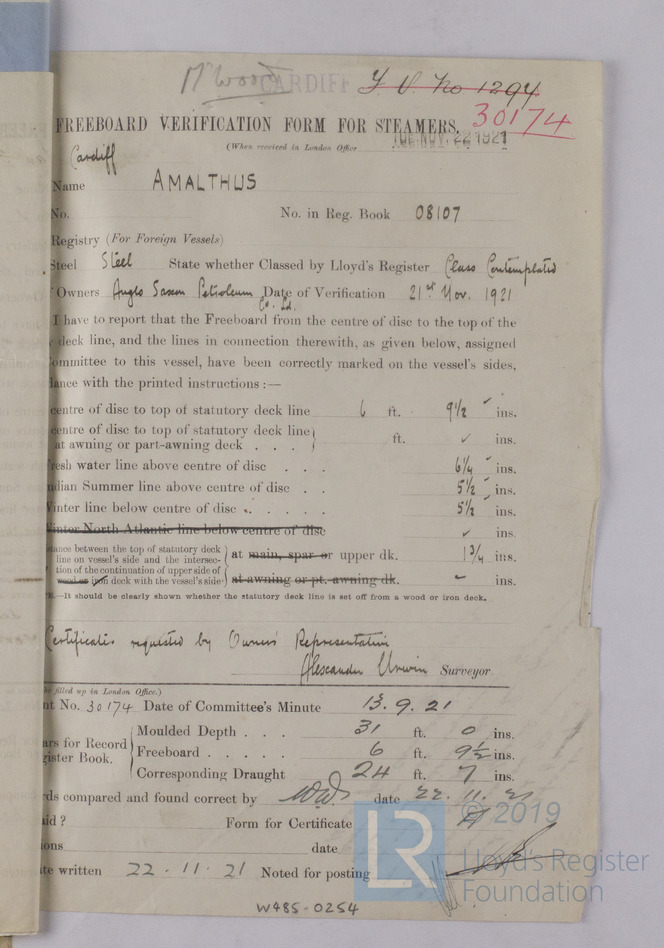 McWood CARDIFF F V No 1294
30174
FREEBOARD VERIFICATION FORM FOR STEAMERS.
(When received in London Office TUE. NOV. 22 1921
Cardiff
Name AMALTHUS
No. No. in Reg. Book 08107
Registry (For Foreign Vessels)
Steel Steel State whether Classed by Lloyd's Register Class Contemplated
Owners Anglo Saxon Petroleum Co. Ld. Date of Verification 21st Nov. 1921
I have to report that the Freeboard from the centre of disc to the top of the
deck line, and the lines in connection therewith, as given below, assigned
ommittee to this vessel, have been correctly marked on the vessel's sides,
dance with the printed instructions :—
centre of disc to top of statutory deck line 6 ft. 9½ ins.
centre of disc to top of statutory deck line
at awning or part-awning deck . . . ft. ins.
resh water line above centre of disc . . . 6¼ ins.
ndian Summer line above centre of disc . . 5½ ins.
Winter line below centre of disc . . . . . 5½ ins.
Winter North Atlantic line below centre of disc ins.
tance between the top of statutory deck
line on vessel's side and the intersec-
tion of the continuation of upper side of
wood or iron deck with the vessel's side
at main, spar or upper dk. 1¾ ins.
at awning or pt. awning dk. ins.
—It should be clearly shown whether the statutory deck line is set off from a wood or iron deck.
Certificate requested by Owners Representative
Alexander Urwin Surveyor
be filled up in London Office.)
nt No. 30174 Date of Committee's Minute 13.9.21
ars for Record
gister Book.
Moulded Depth . . . 31 ft. 0 ins.
Freeboard . . . . . 6 ft. 9½ ins.
Corresponding Draught 24 ft. 7 ins.
rds compared and found correct by date 22.11.21
aid ? Form for Certificate
ions date
te written 22.11.21 Noted for posting
© 2019
LR Lloyd's Register
Foundation
W485-0254